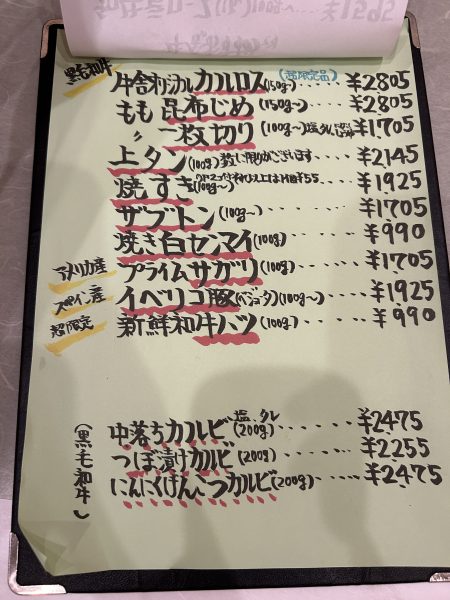 黒毛和牛
牛舎オリジナルカルロス(150g~)‥‥ ¥2805
(超限定品)
もも昆布じめ(150g~)‥‥ ¥2805
〃 一枚切り(100g~)塩,タレ ¥1705
上タン(100g)数に限りがございます‥‥ ¥2145
焼すき(100g~)‥‥‥ ¥1925
ザブトン(100g~)‥‥‥ ¥1705
焼き白センマイ(100g)‥‥ ¥990
アメリカ産 プライムサガリ(100g)‥‥ ¥1705
スペイン産 イベリコ豚(ベジョータ)(100g~)‥‥ ¥1925
超限定 新鮮和牛ハツ(100g)‥‥‥ ¥990
(黒毛和牛)
中落ちカルビ(200g)‥‥‥ ¥2475
塩,タレ
つぼ漬けカルビ(200g)‥‥‥ ¥2255
にんにくげんこつカルビ(200g)‥‥ ¥2475